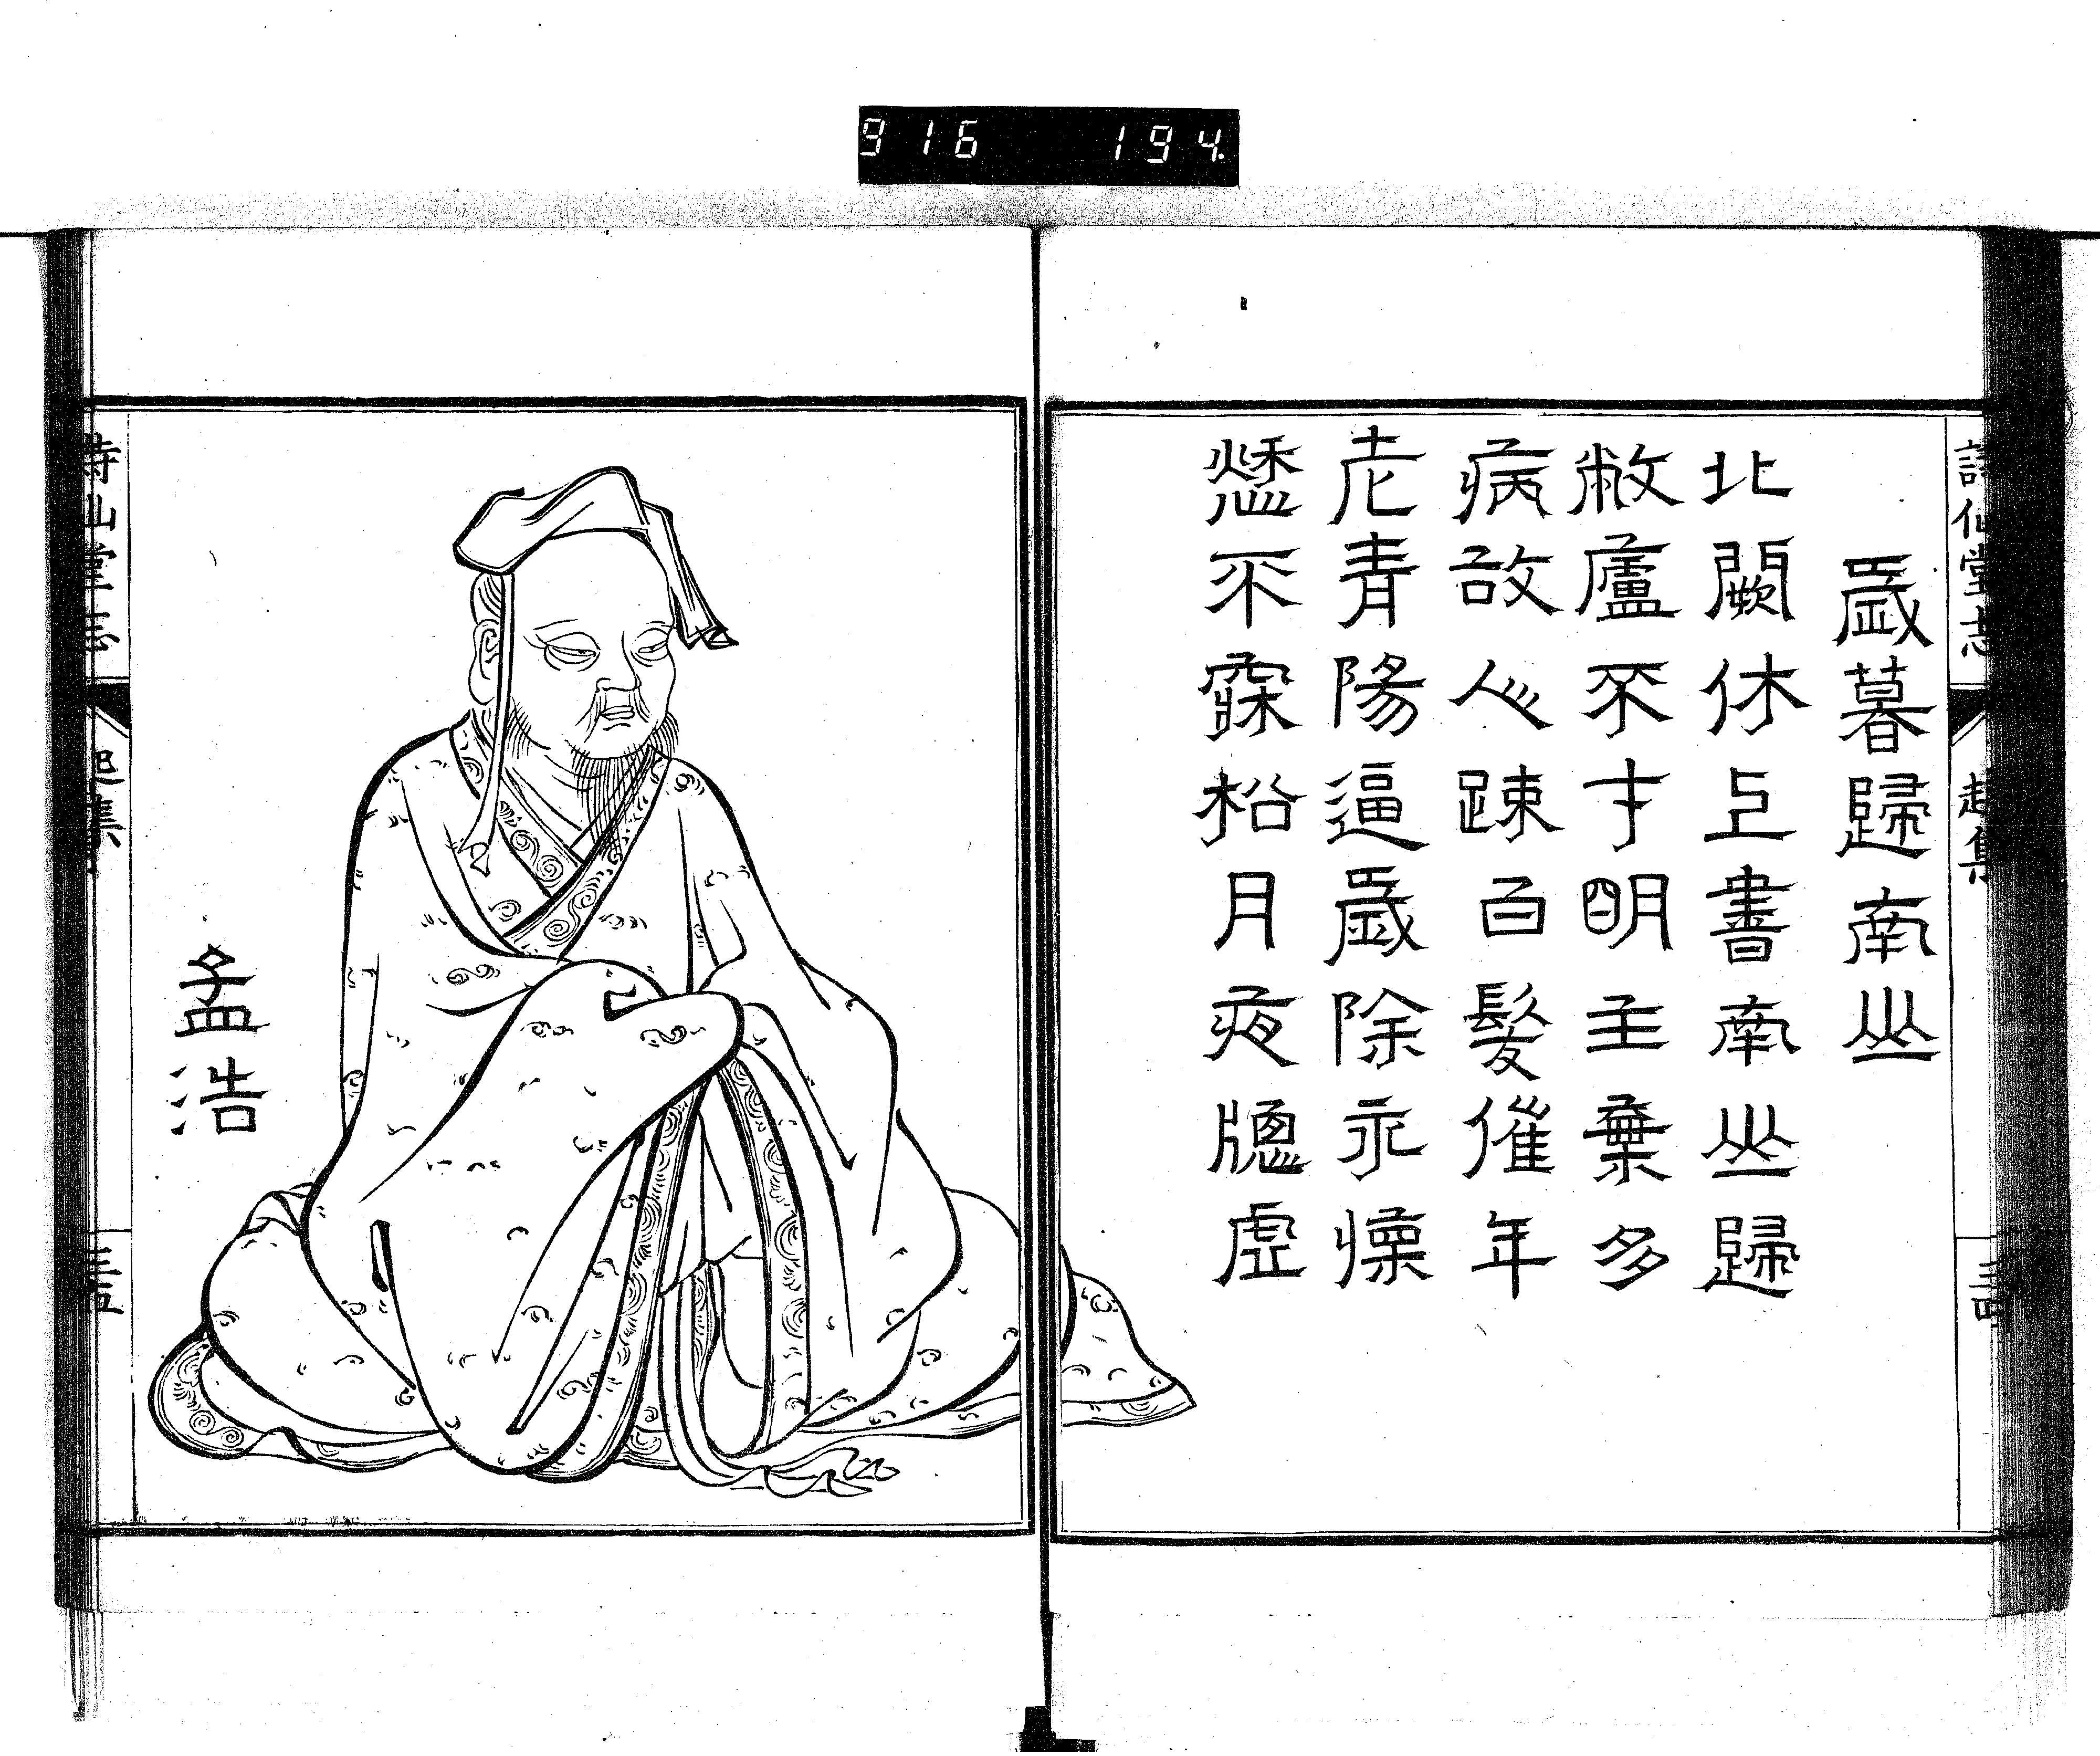 916 194.
詩仙堂志
起集
三四
歲暮歸南山
北闕休上書南山歸
敝廬不才明主棄多
病故人疎百髮催年
老青陽逼歲除永懷
愁不寐松月夜牕虛
孟浩
詩仙堂志
起集
三五